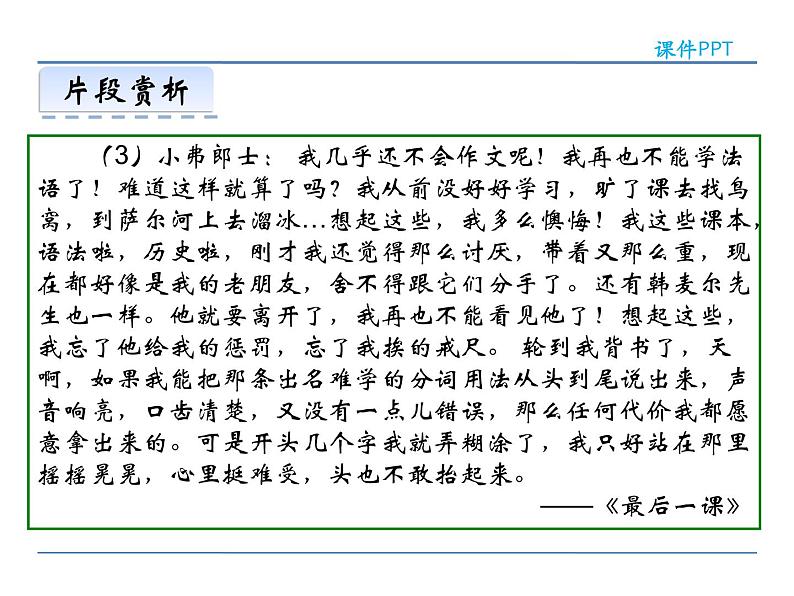 课件PPT
片段赏析
（3）小弗郎士： 我几乎还不会作文呢！我再也不能学法
语了！难道这样就算了吗？我从前没好好学习，旷了课去找鸟
窝，到萨尔河上去溜冰…想起这些，我多么懊悔！我这些课本，
语法啦，历史啦，刚才我还觉得那么讨厌，带着又那么重，现
在都好像是我的老朋友，舍不得跟它们分手了。还有韩麦尔先
生也一样。他就要离开了，我再也不能看见他了！想起这些，
我忘了他给我的惩罚，忘了我挨的戒尺。 轮到我背书了，天
啊，如果我能把那条出名难学的分词用法从头到尾说出来，声
音响亮，口齿清楚，又没有一点儿错误，那么任何代价我都愿
意拿出来的。可是开头几个字我就弄糊涂了，我只好站在那里
摇摇晃晃，心里挺难受，头也不敢抬起来。
——《最后一课》